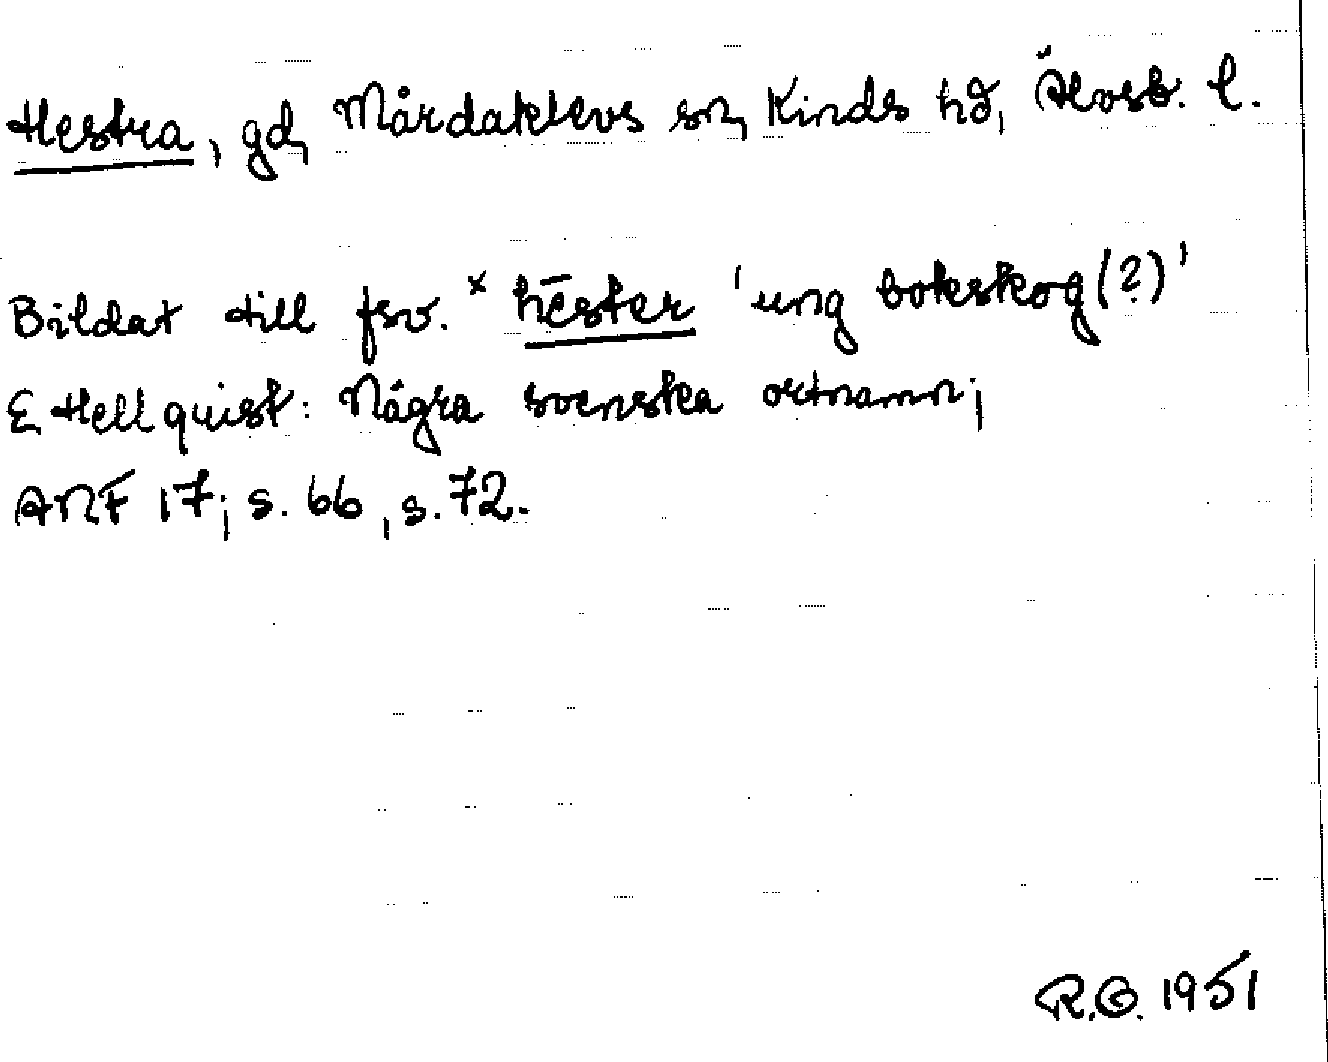 Hestra, gd, Mårdaklevs sn, Kinds hd, Älvsb. l.
Bildat till fsv. × hēster 'ung bokskog(?)'
E Hellquist: Några svenska ortnamn;
ANF 17; s. 66, s. 72.
R.G. 1951